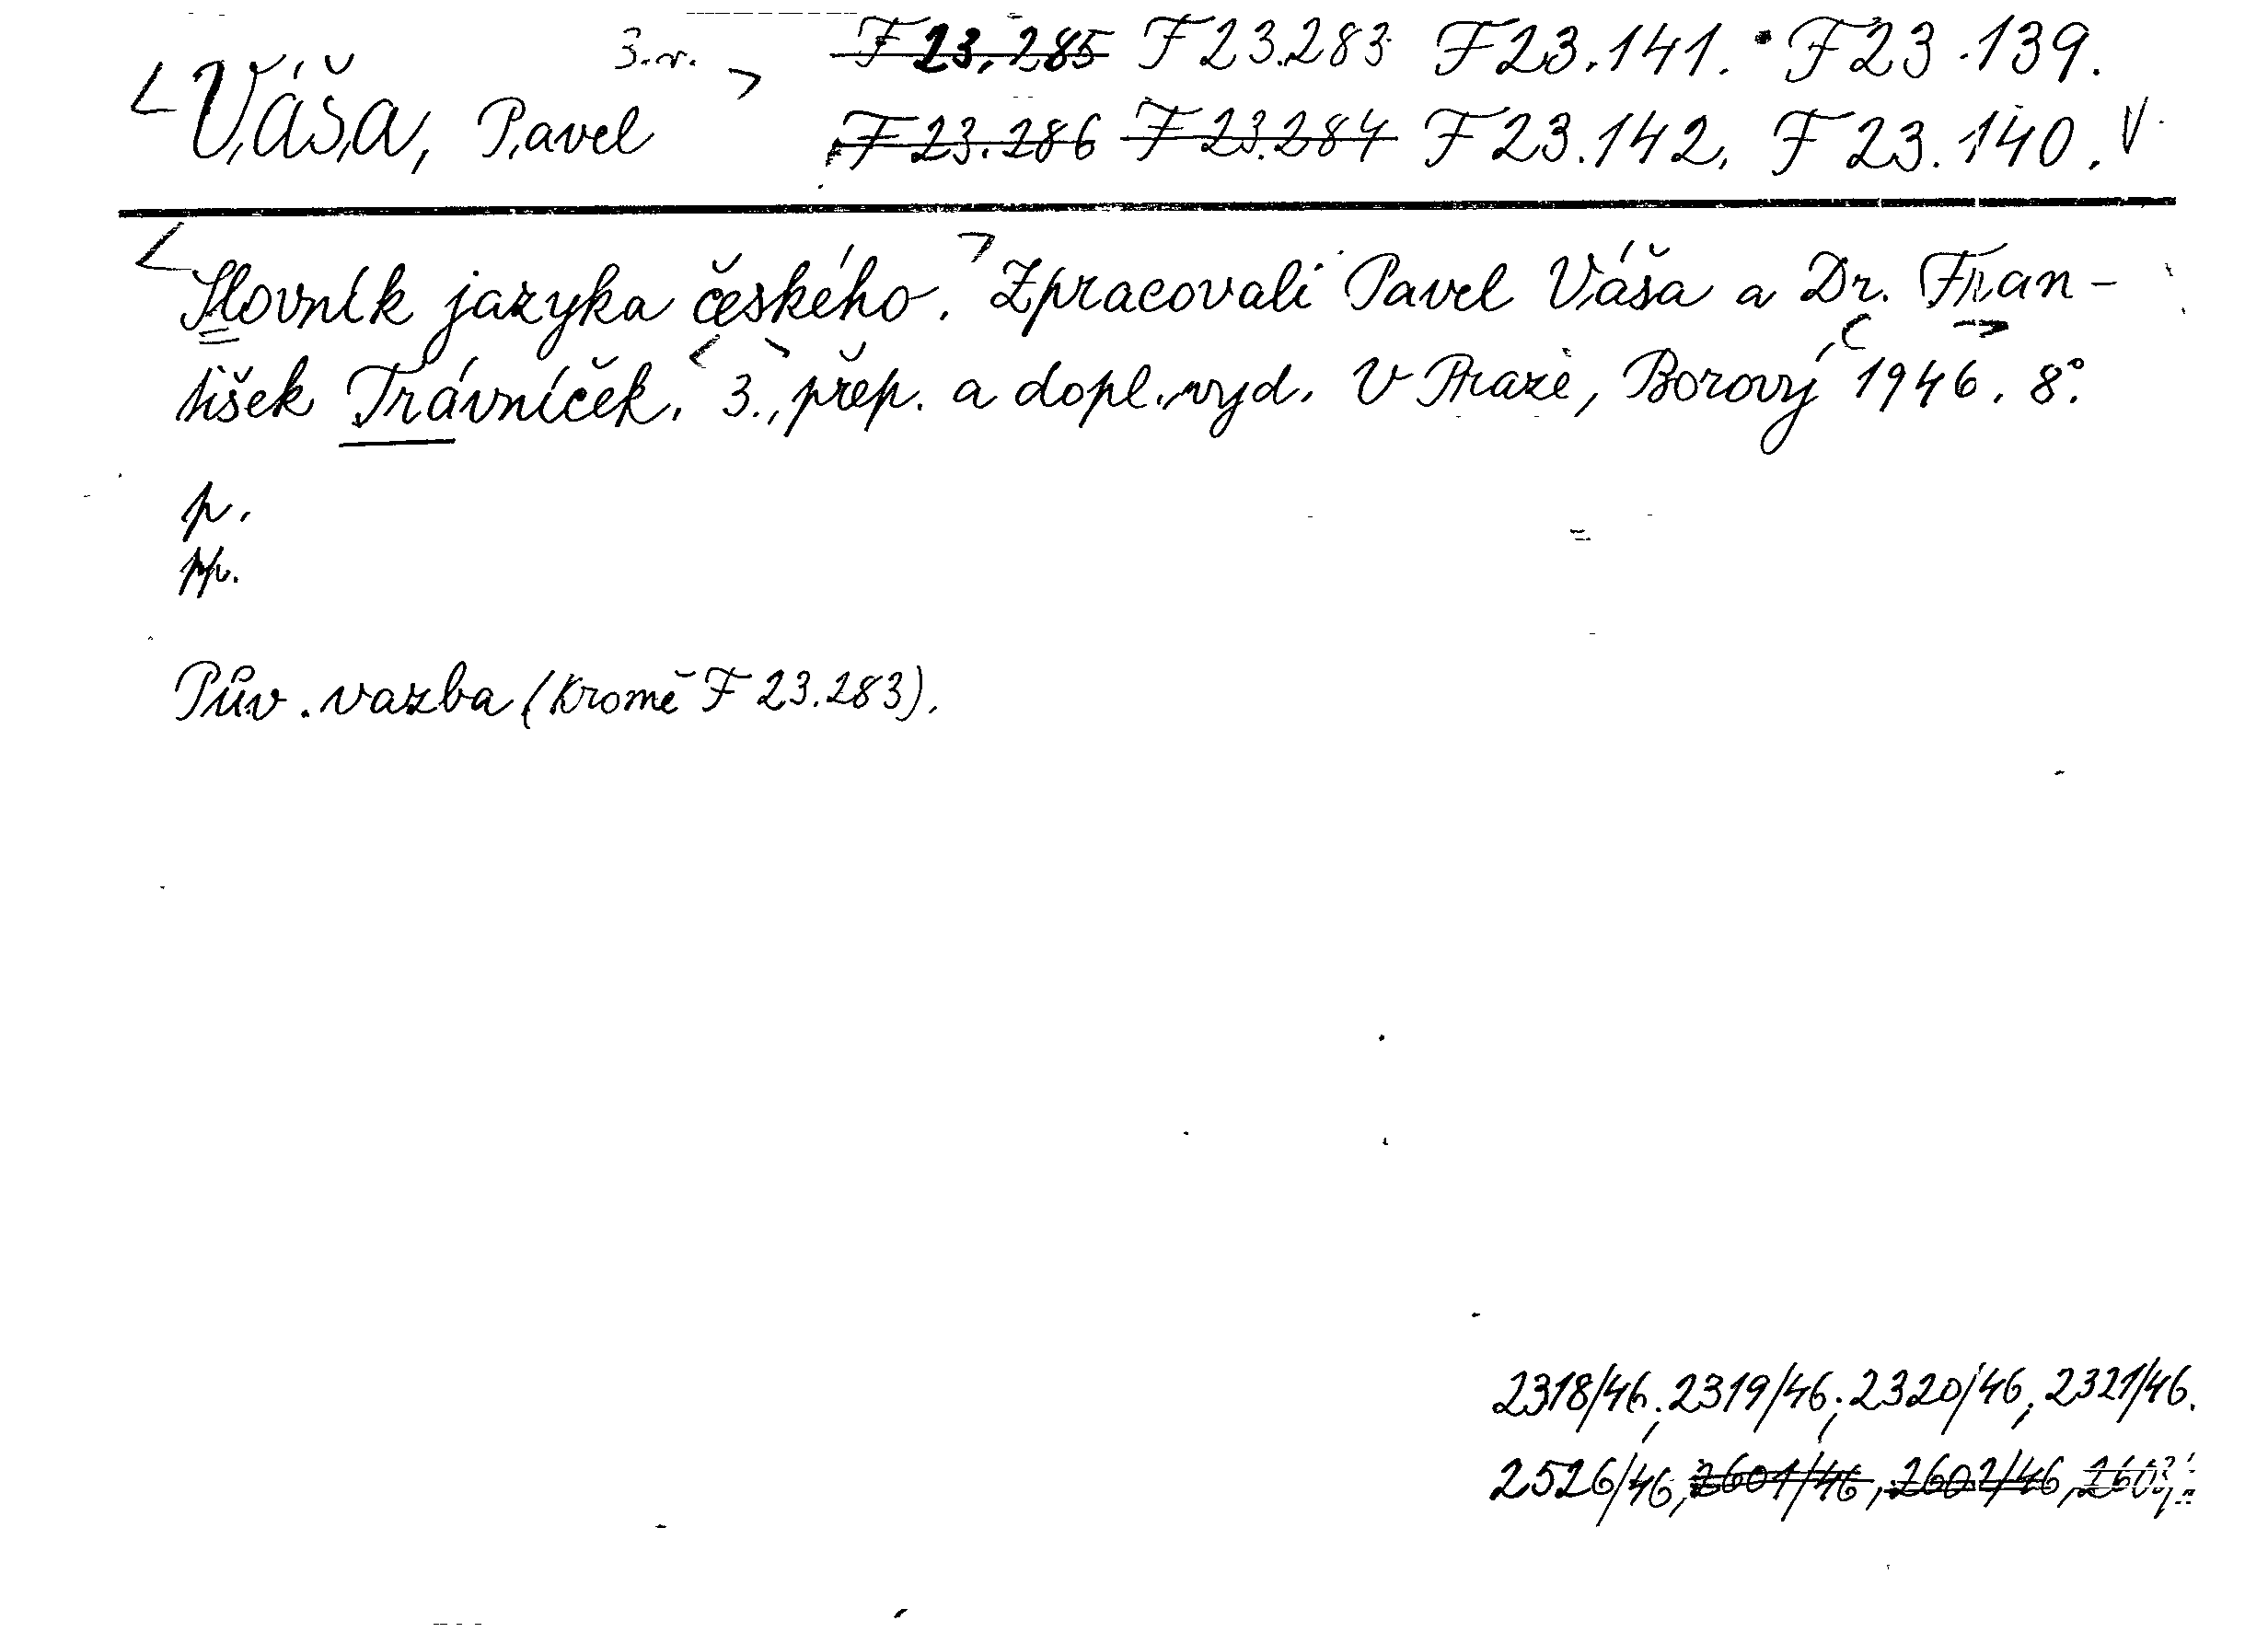 3.v. F 23.285 F 23.283 F 23.141. F 23.139.
<Váša, Pavel> F 23.286 F 23.284 F 23.142, F 23.140. V
<Slovník jazyka českého.> Zpracovali Pavel Váša a Dr. Fran-
tišek Trávníček. <3.,> přep. a dopl. vyd. V Praze, Borový, <1946>. 8°.
p.
pp.
Pův. vazba (kromě F 23.283).
2318/46, 2319/46, 2320/46, 2321/46.
2526/46, 2601/46, 2602/46,